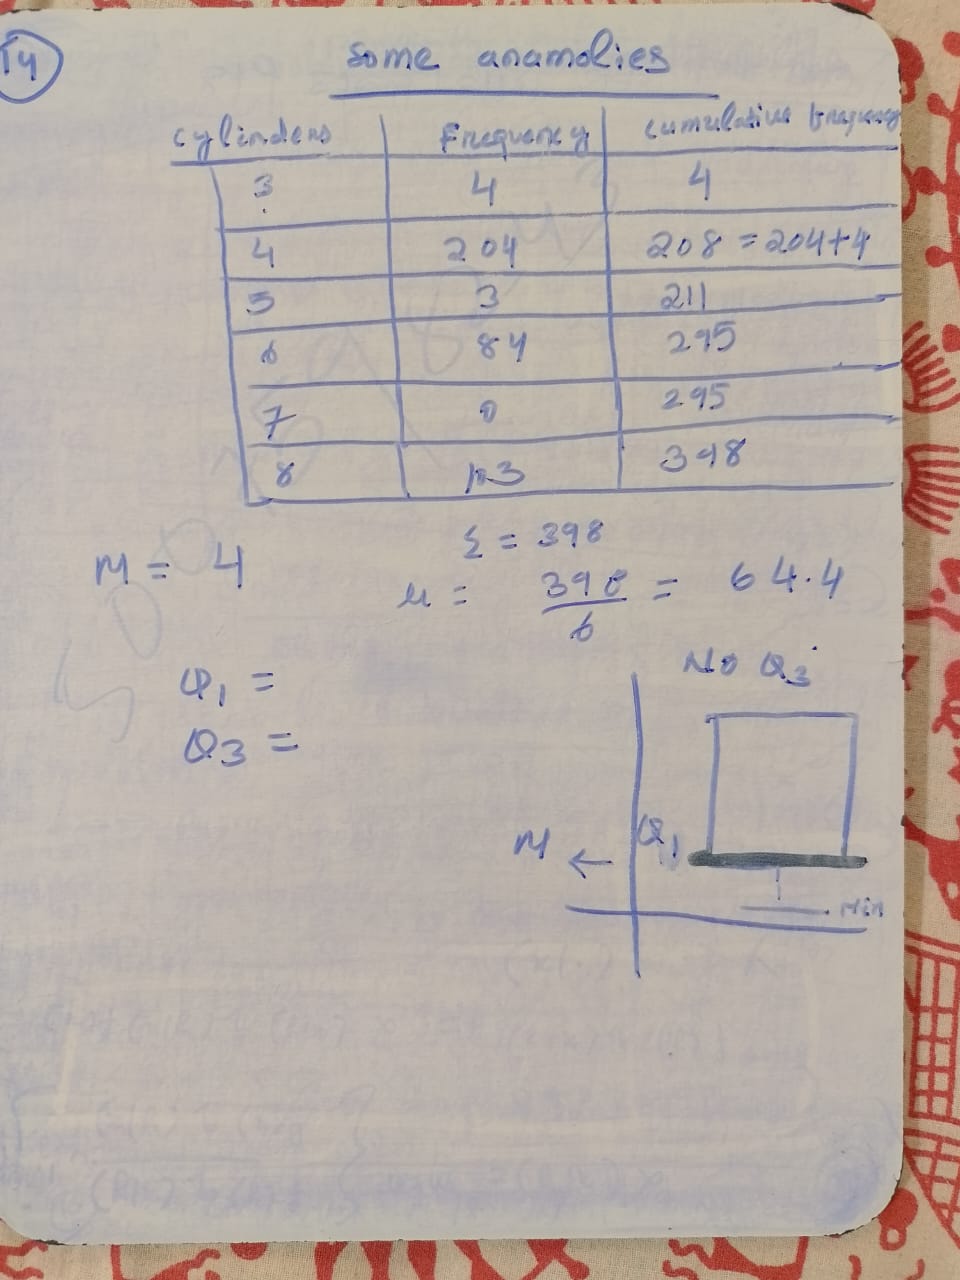 14
some anamolies
cylinders Frequency cumulative frequency
3 4 4
4 204 208 = 204+4
5 3 211
6 84 295
7 0 295
8 103 398
M = 4
Σ = 398
μ = 398/6 = 64.4
Q1 =
Q3 =
No Q3
M ← Q1
Min